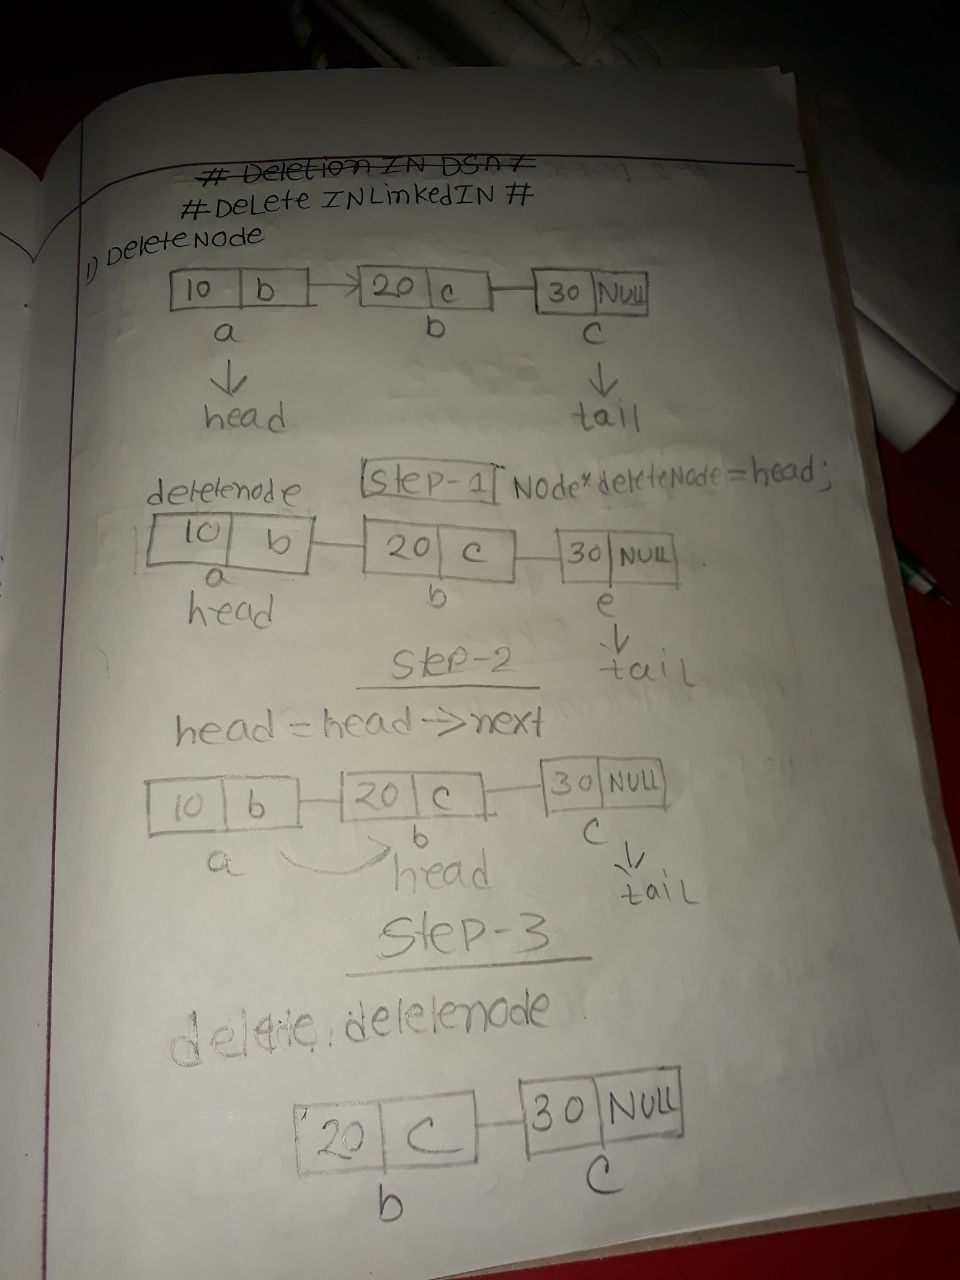 # Deletion IN DSA #
# DeLete INLinkedIN #
1) DeleteNode
10 b 20 c 30 NULL
a b c
head tail
deletenode Step-1 Node* deleteNode = head;
10 b 20 c 30 NULL
a b e
head tail
Step-2
head = head -> next
10 b 20 c 30 NULL
a b c
head tail
Step-3
delete deletenode
20 C 30 NULL
b C